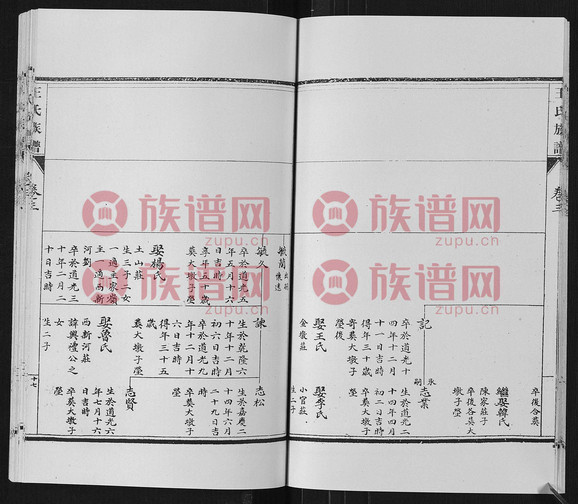 王氏族譜
卷三
卒後合奠
繼娶韓氏
陳家莊子
卒後各奠大
墩子塋
永
嗣
志業
生於道光二
十四年四月
初二日吉時
娶李氏
小官莊
生二子
記
卒於道光十
四年十二月
十二日吉時
得年三十歲
寄奠大墩子
塋後
娶王氏
金墩莊
毓蘭
毓久
卒於道光五
年五月十六
日吉時
享年五十歲
奠大墩子塋
娶楊氏
土山莊
生三子二女
一適王家嶺
主一適南新
河劉
卒於道光三
十年二月二
十日吉時
諫
生於乾隆六
十年十二月
初六日吉時
卒於道光九
年十二月十
六日吉時
得年三十五
歲
奠大墩子塋
娶魯氏
西新河莊
諱興禮公之
女
生二子
志松
生於嘉慶二
十四年六月
二十九日吉
時
卒奠大墩子
塋
志賢
生於道光六
年七月十六
日吉時
卒奠大墩子
塋
十七
王氏族譜
卷三
族谱网
zupu.cn
族谱网
zupu.cn
族谱网
zupu.cn
族谱网
zupu.cn